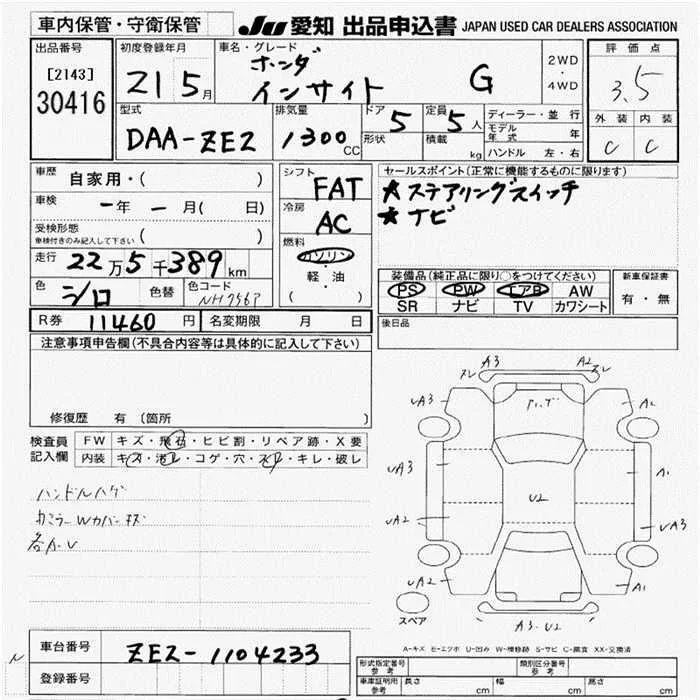 車内保管・守衛保管
JU 愛知 出品申込書 JAPAN USED CAR DEALERS ASSOCIATION
出品番号
[2143]
30416
初度登録年月
21 5月
車名・グレード
ホンダ
インサイト G
2WD
・
4WD
評価点
3.5
外装 内装
C C
型式
DAA-ZE2
排気量
1300 CC
ドア 5
形状
定員 5人
積載 kg
ディーラー・並行
モデル年式 年
ハンドル 左・右
車歴 自家用・( )
車検 ー年 ー月( 日)
受検形態
車検付きのみ記入して下さい ( )
走行 22万5千389km
色 シロ 色替 色コード NH756P
シフト FAT
冷房 AC
燃料
ガソリン
・
軽・油
( )
セールスポイント(正常に機能するものに限ります)
★ステアリングスイッチ
★ナビ
装備品(純正品に限り○をつけてください)
PS PW エアB AW
SR ナビ TV カワシート
新車保証書
有・無
後日品
R券 11460円 名変期限 月 日
注意事項申告欄(不具合内容等は具体的に記入して下さい)
修復歴 有 〔箇所 〕
検査員記入欄
FW キズ・飛石・ヒビ割・リペア跡・X要
内装 キズ・汚レ・コゲ・穴・スレ・キレ・破レ
ハンドルハゲ
A3 A2
スレ スレ
UA3 A2
UA3 A1
U2
UA2 UA3
UA2 A1
A3.U2
スペア
A-キズ E-エクボ U-凹み W-補修跡 S-サビ C-腐食 XX-交換済
車台番号 ZE2-1104233
登録番号
形式指定番号 参考
類別区分番号 参考
車庫証明用 参考 長さ cm 幅 cm 高さ cm